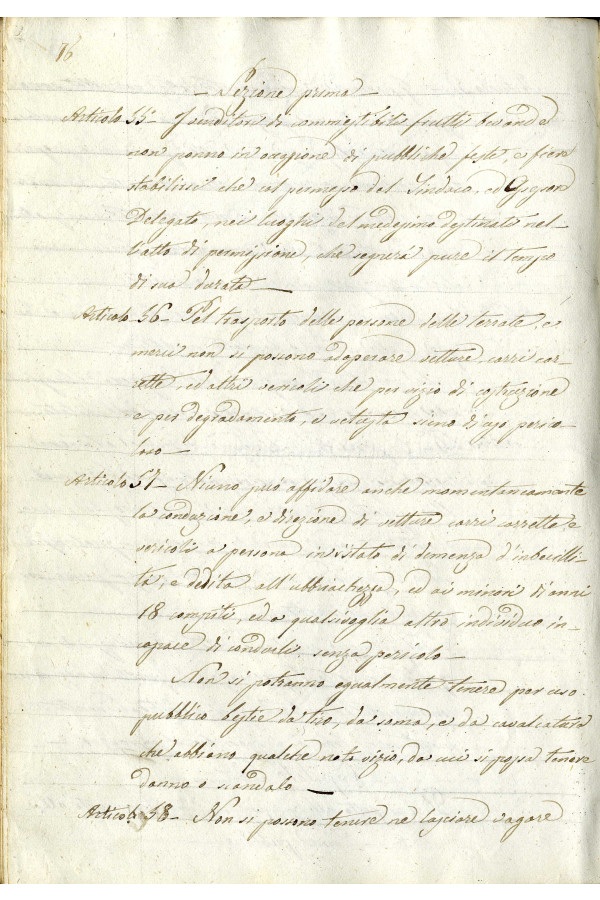 76
- Sezione prima -
Articolo 55° I venditori di commestibili frutti bevande
non ponno in occasione di pubbliche feste, e fiere
stabilirsi che col permesso del Sindaco, od Assessore
Delegato, nei luoghi dal medesimo destinati nel-
l'atto di permissione, che segnerà pure il tempo
di sua durata -
Articolo 56 - Pel trasporto delle persone delle terrate, e
merci non si possono adoperare vetture, carri car-
rette, ed altri veicoli che per vizio di costruzione
e per degradamento, e vetustà sieno di uso perico-
loso -
Articolo 57 - Niuno può affidare anche momentaneamente
la conduzione, e direzione di vetture carri carrette e
veicoli a persona in istato di demenza d'inbecilli-
tà, e dedita all'ubbriachezza, ed ai minori di anni
18 compiti, ed a qualsivoglia altro individuo in-
capace di condurli senza pericolo -
Non si potranno egualmente tenere per uso
pubblico bestie da tiro, da soma, e da cavalcatura
che abbiano qualche noto vizio, da cui si possa temere
danno o scandalo -
Articolo 58 - Non si possono tenere ne lasciare vagare